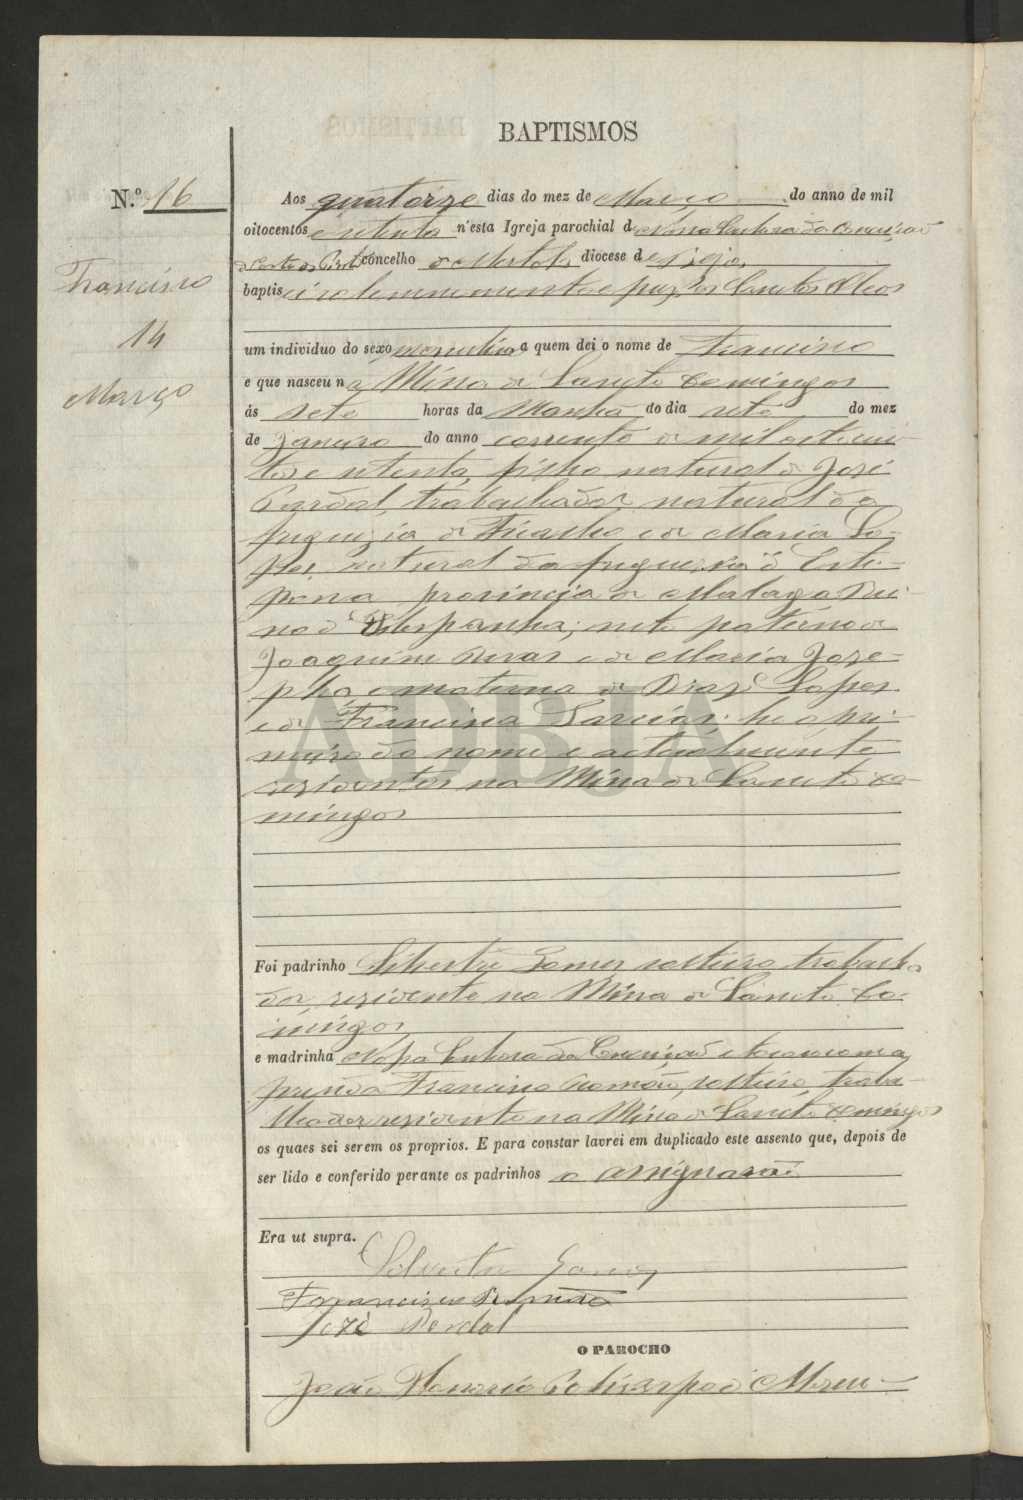 BAPTISMOS
N.º 16
Francisco
14
Março
Aos quatorze dias do mez de Março do anno de mil
oitocentos e setenta n'esta Igreja parochial de Nossa Senhora da Conceição
concelho de Mertola diocese de Beja,
baptisei solemnemente e puz os Sanctos Oleos
um individuo do sexo masculino a quem dei o nome de Francisco
e que nasceu na Mina de Sancto Domingos
ás sete horas da Manhã do dia sete do mez
de Janeiro do anno corrente de mil oitocen-
tos e setenta, filho natural de José
Pardal, trabalhador, natural da
freguezia de e de Maria Lo-
pes, natural da freguezia de Este-
pona provincia de Malaga Rei-
no d'Hespanha; neto paterno de
Joaquim e de Maria Joze-
pha e materno de Lopes
e de Francisca Garcias: he o pri-
meiro do nome e actualmente
rezidentes na Mina de Sancto Do-
mingos
Foi padrinho Silvestre Gomes solteiro trabalha-
dor, rezidente na Mina de Sancto Do-
mingos
e madrinha Nossa Senhora da Conceição e tocou com a
prenda Francisco Romão, solteiro, traba-
lhador rezidente na Mina de Sancto Domingos
os quaes sei serem os proprios. E para constar lavrei em duplicado este assento que, depois de
ser lido e conferido perante os padrinhos o assignarão.
Era ut supra.
Selvestre Gomes
Francisco Romão
José Pardal
O PAROCHO
João Honorio Policarpo
ADBJA